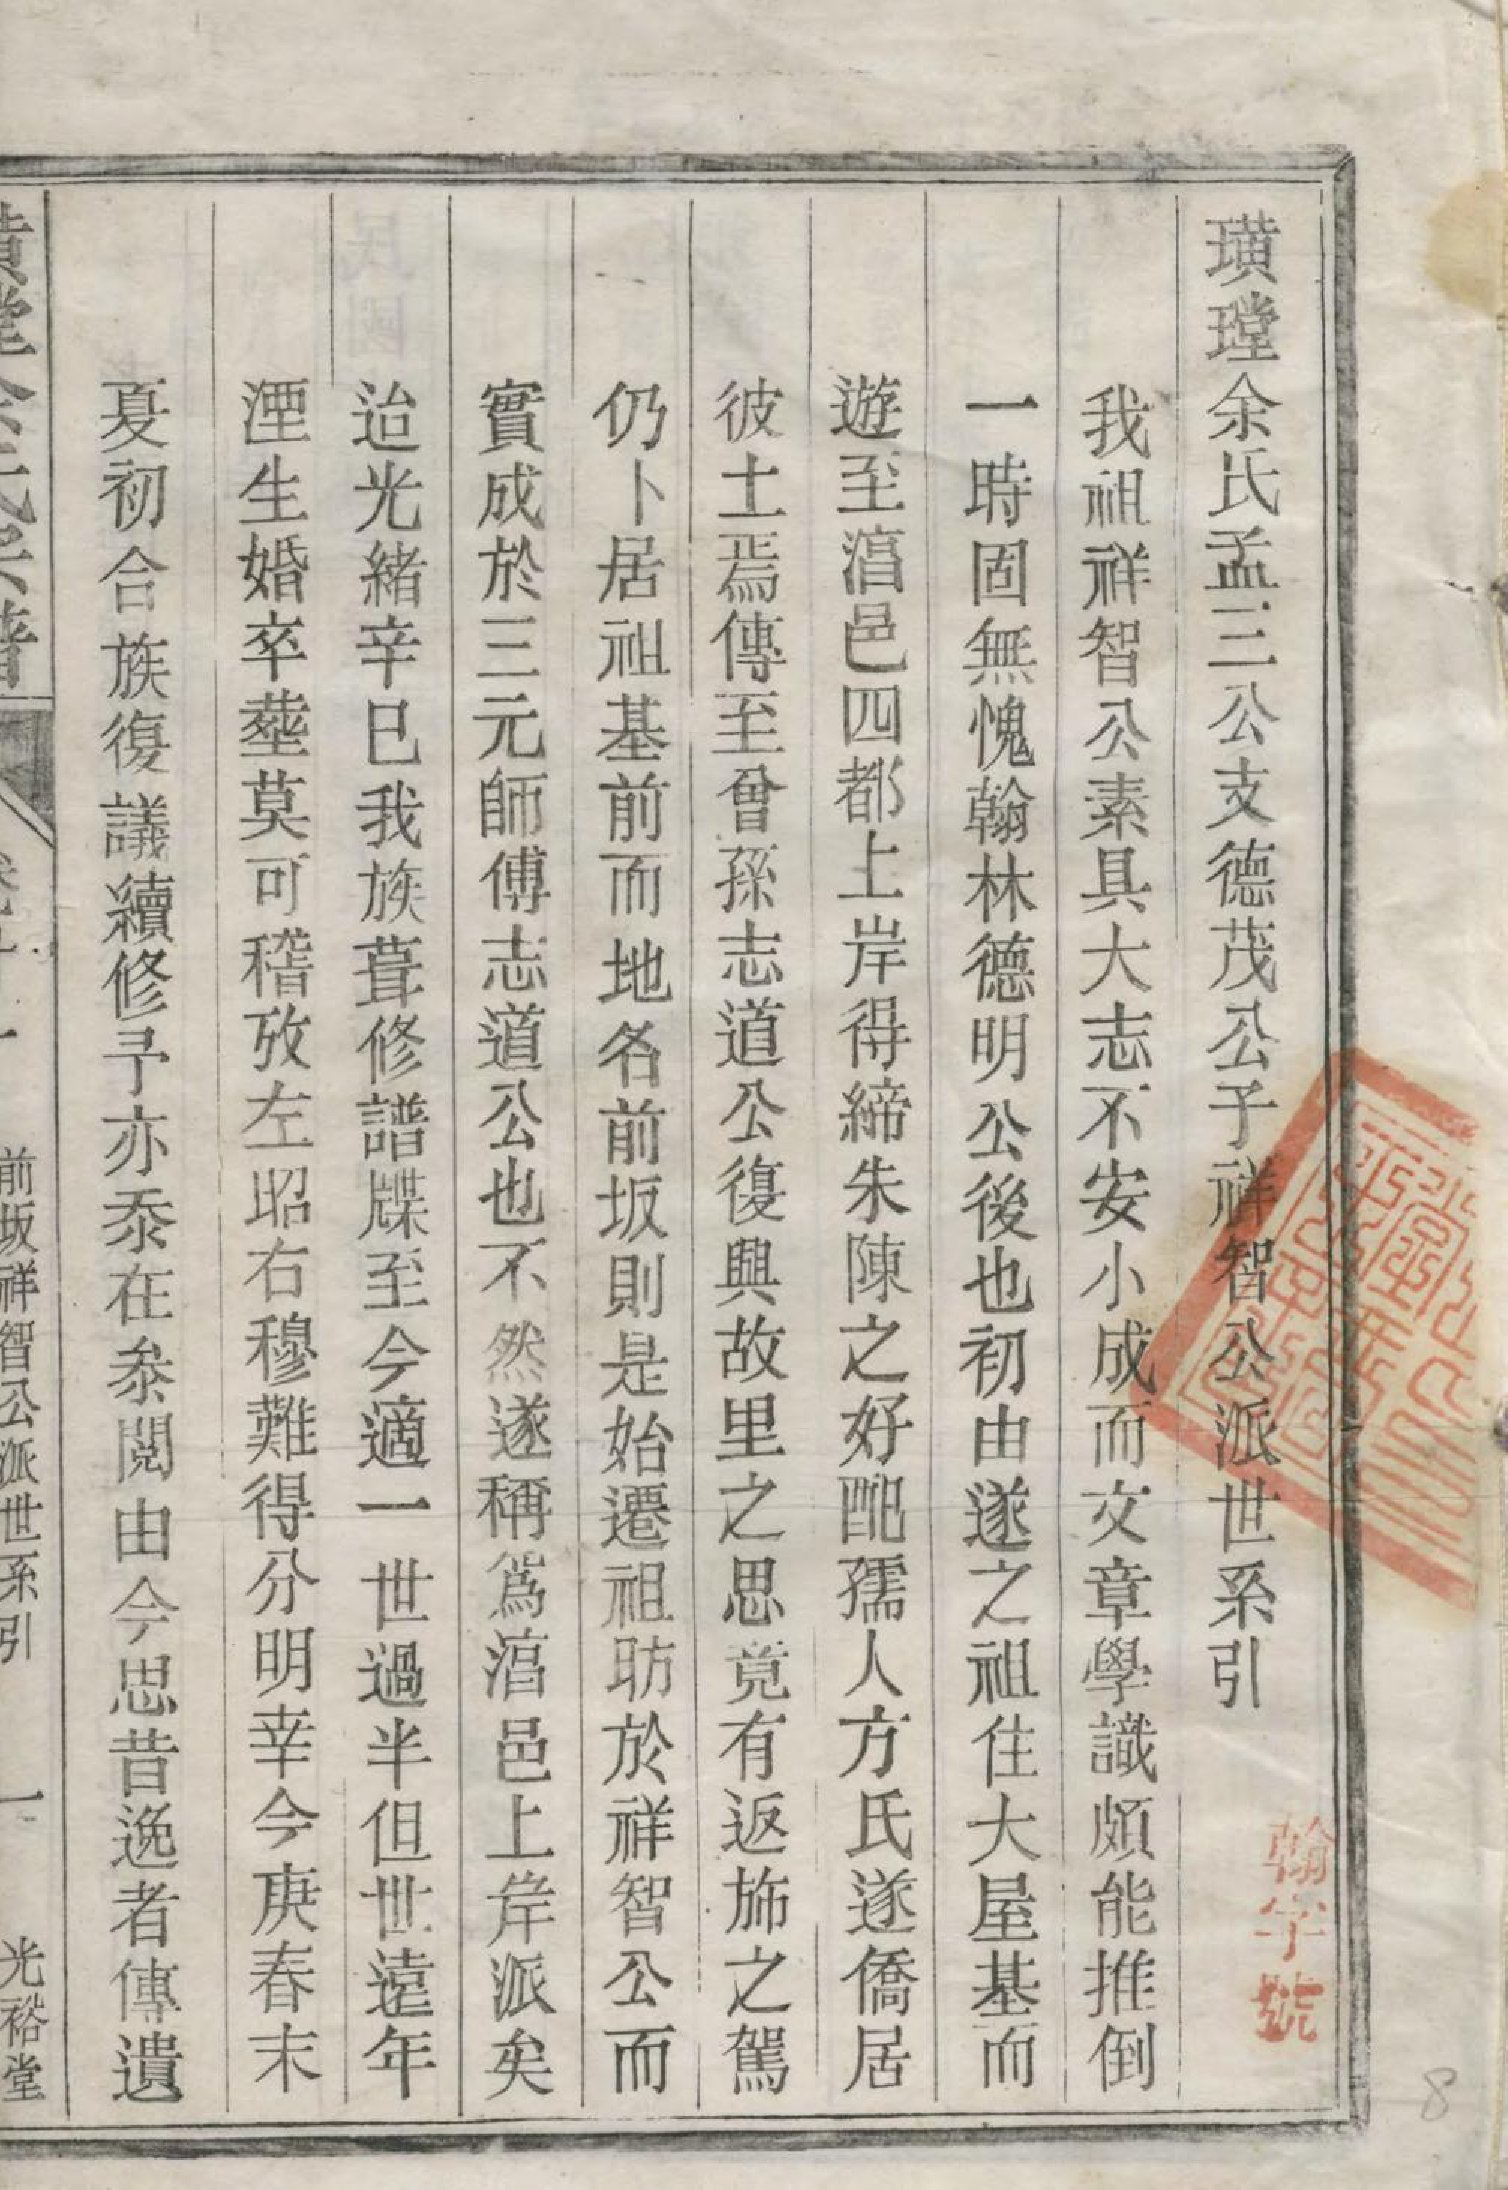 璜瑝余氏孟三公支德茂公子祥智公派世系引
我祖祥智公素具大志不安小成而文章學識頗能推倒
一時固無愧翰林德明公後也初由遂之祖住大屋基而
遊至湻邑四都上岸得締朱陳之好配孺人方氏遂僑居
彼土焉傳至曾孫志道公復興故里之思竟有返斾之駕
仍卜居祖基前而地名前坂則是始遷祖昉於祥智公而
實成於三元師傅志道公也不然遂稱爲湻邑上岸派矣
迨光緒辛巳我族葺修譜牒至今適一世過半但世遠年
湮生婚卒塟莫可稽攷左昭右穆難得分明幸今庚春末
夏初合族復議續修予亦忝在叅閱由今思昔逸者傳遺
前坂祥智公派世系引
一
光裕堂
翰字號